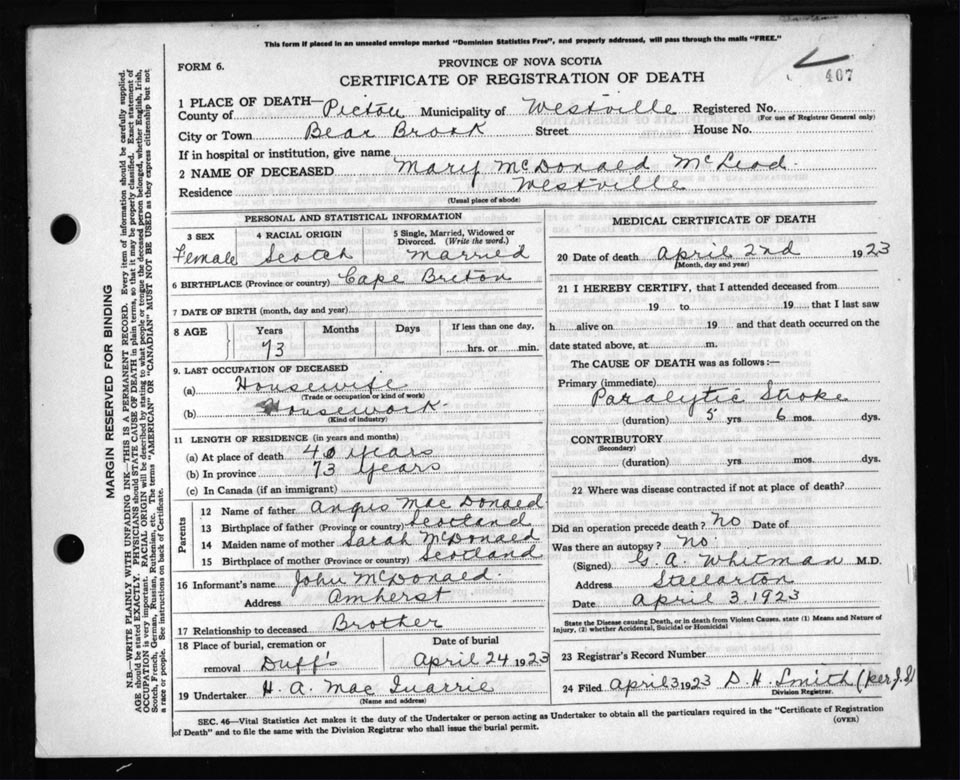 This form if placed in an unsealed envelope marked "Dominion Statistics Free", and properly addressed, will pass through the mails "FREE."
FORM 6.
PROVINCE OF NOVA SCOTIA
CERTIFICATE OF REGISTRATION OF DEATH
407
1 PLACE OF DEATH—
County of Pictou Municipality of Westville Registered No.
(For use of Registrar General only)
City or Town Bear Brook Street House No.
If in hospital or institution, give name
2 NAME OF DECEASED Mary McDonald McLeod
Residence Westville
(Usual place of abode)
PERSONAL AND STATISTICAL INFORMATION
3 SEX 4 RACIAL ORIGIN 5 Single, Married, Widowed or Divorced. (Write the word.)
Female Scotch married
6 BIRTHPLACE (Province or country) Cape Breton
7 DATE OF BIRTH (month, day and year)
8 AGE Years Months Days If less than one day,
73 hrs. or min.
9. LAST OCCUPATION OF DECEASED
(a) Housewife
(Trade or occupation or kind of work)
(b) Housework
(Kind of industry)
11 LENGTH OF RESIDENCE (in years and months)
(a) At place of death 40 years
(b) In province 73 years
(c) In Canada (if an immigrant)
Parents
12 Name of father Angus Mac Donald
13 Birthplace of father (Province or country) Scotland
14 Maiden name of mother Sarah McDonald
15 Birthplace of mother (Province or country) Scotland
16 Informant's name John McDonald
Address Amherst
17 Relationship to deceased Brother
18 Place of burial, cremation or removal Duff's
Date of burial April 24 1923
19 Undertaker H. A. Mac Quarrie
(Name and address)
MEDICAL CERTIFICATE OF DEATH
20 Date of death April 2nd 1923
(Month, day and year)
21 I HEREBY CERTIFY, that I attended deceased from
19 to 19 that I last saw
h alive on 19 and that death occurred on
date stated above, at m.
The CAUSE OF DEATH was as follows:—
Primary (immediate)
Paralytic Stroke
(duration) 5 yrs 6 mos. dys.
CONTRIBUTORY
(Secondary)
(duration) yrs. mos. dys.
22 Where was disease contracted if not at place of death?
Did an operation precede death? No Date of
Was there an autopsy? No
(Signed) G. A. Whitman M.D.
Address Stellarton
Date April 3. 1923
State the Disease causing Death, or in death from Violent Causes, state (1) Means and Nature of
Injury, (2) whether Accidental, Suicidal or Homicidal
23 Registrar's Record Number
24 Filed April 3 1923 D. H. Smith (per J.S)
Division Registrar.
SEC. 46—Vital Statistics Act makes it the duty of the Undertaker or person acting as Undertaker to obtain all the particulars required in the "Certificate of Registration
of Death" and to file the same with the Division Registrar who shall issue the burial permit.
(OVER)
MARGIN RESERVED FOR BINDING
N.B.—WRITE PLAINLY WITH UNFADING INK—THIS IS A PERMANENT RECORD. Every item of information should be carefully supplied.
AGE should be stated EXACTLY. PHYSICIANS should STATE CAUSE OF DEATH in plain terms, so that it may be properly classified. Exact statement of
OCCUPATION is very important. RACIAL ORIGIN will be described by stating to what people or tongue the deceased person belonged, whether English, Irish,
Scotch, French, German, Russian, Ruthenian, etc. The terms "AMERICAN" OR "CANADIAN" MUST NOT BE USED as they express citizenship but not
a race or people. See instructions on back of Certificate.